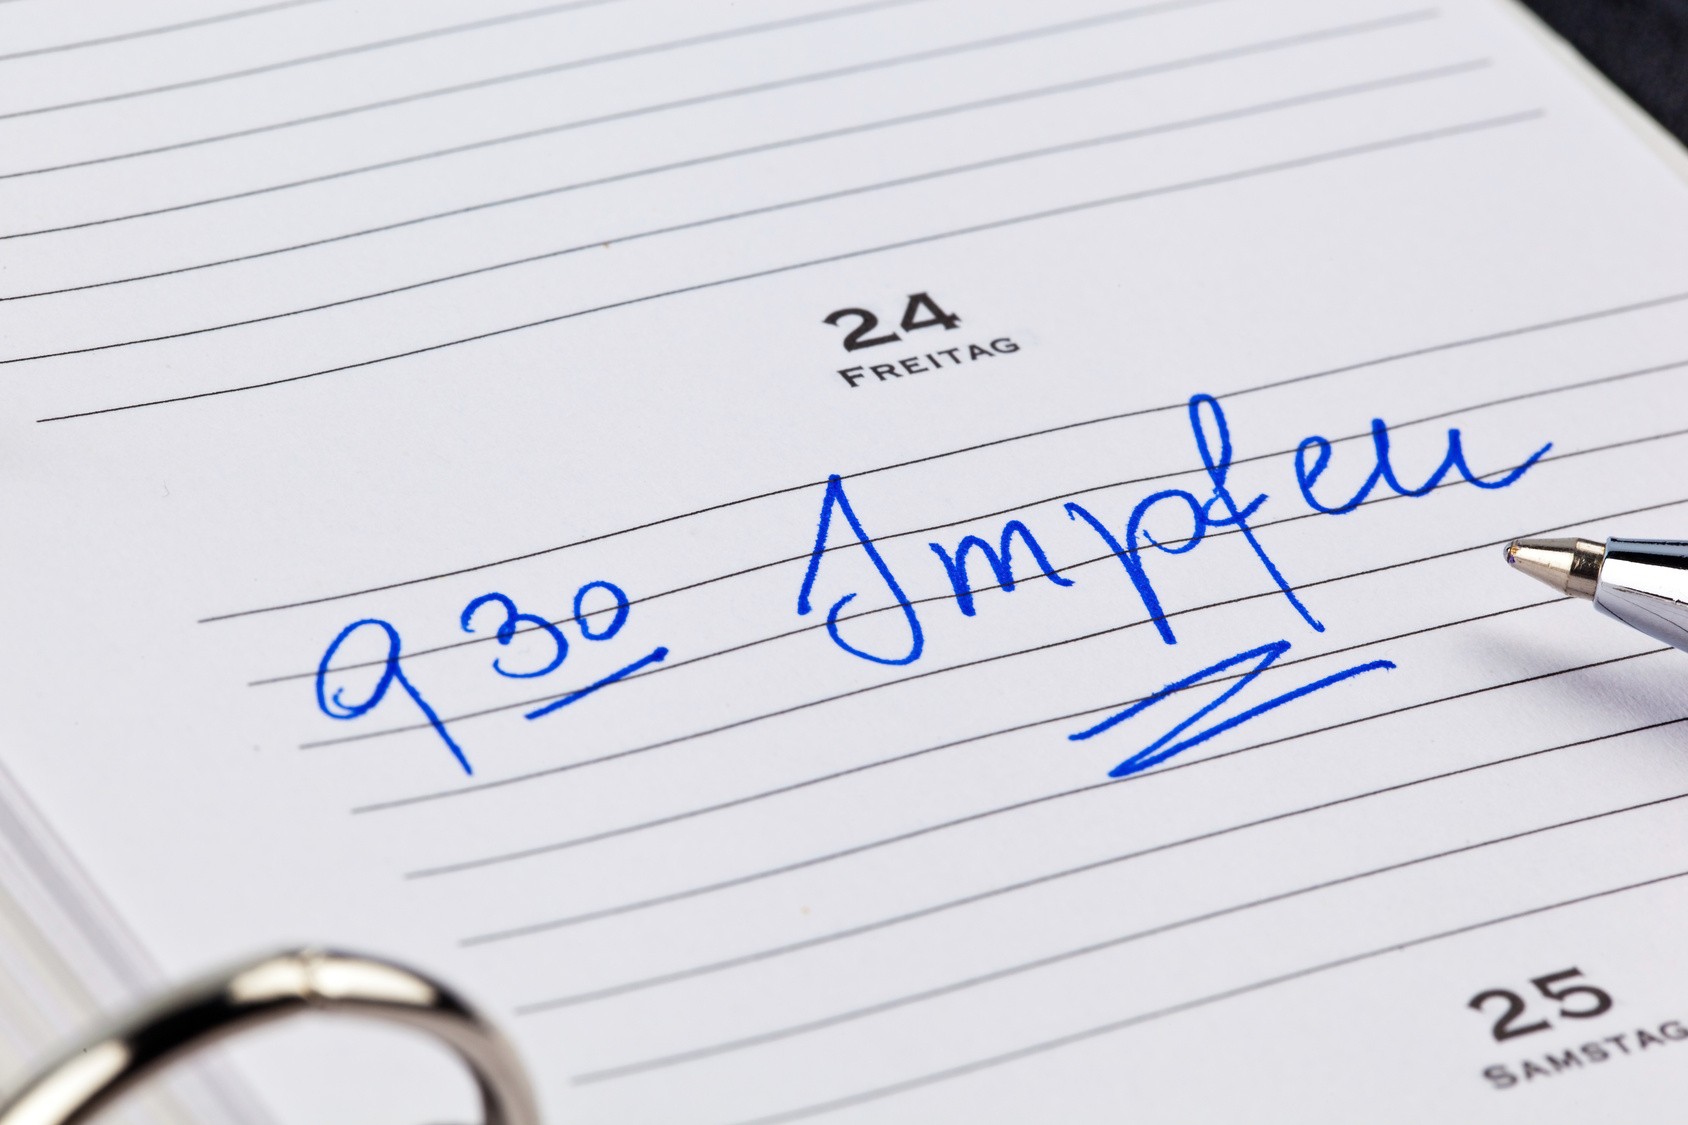 24
FREITAG
9 30 Impfen
25
SAMSTAG